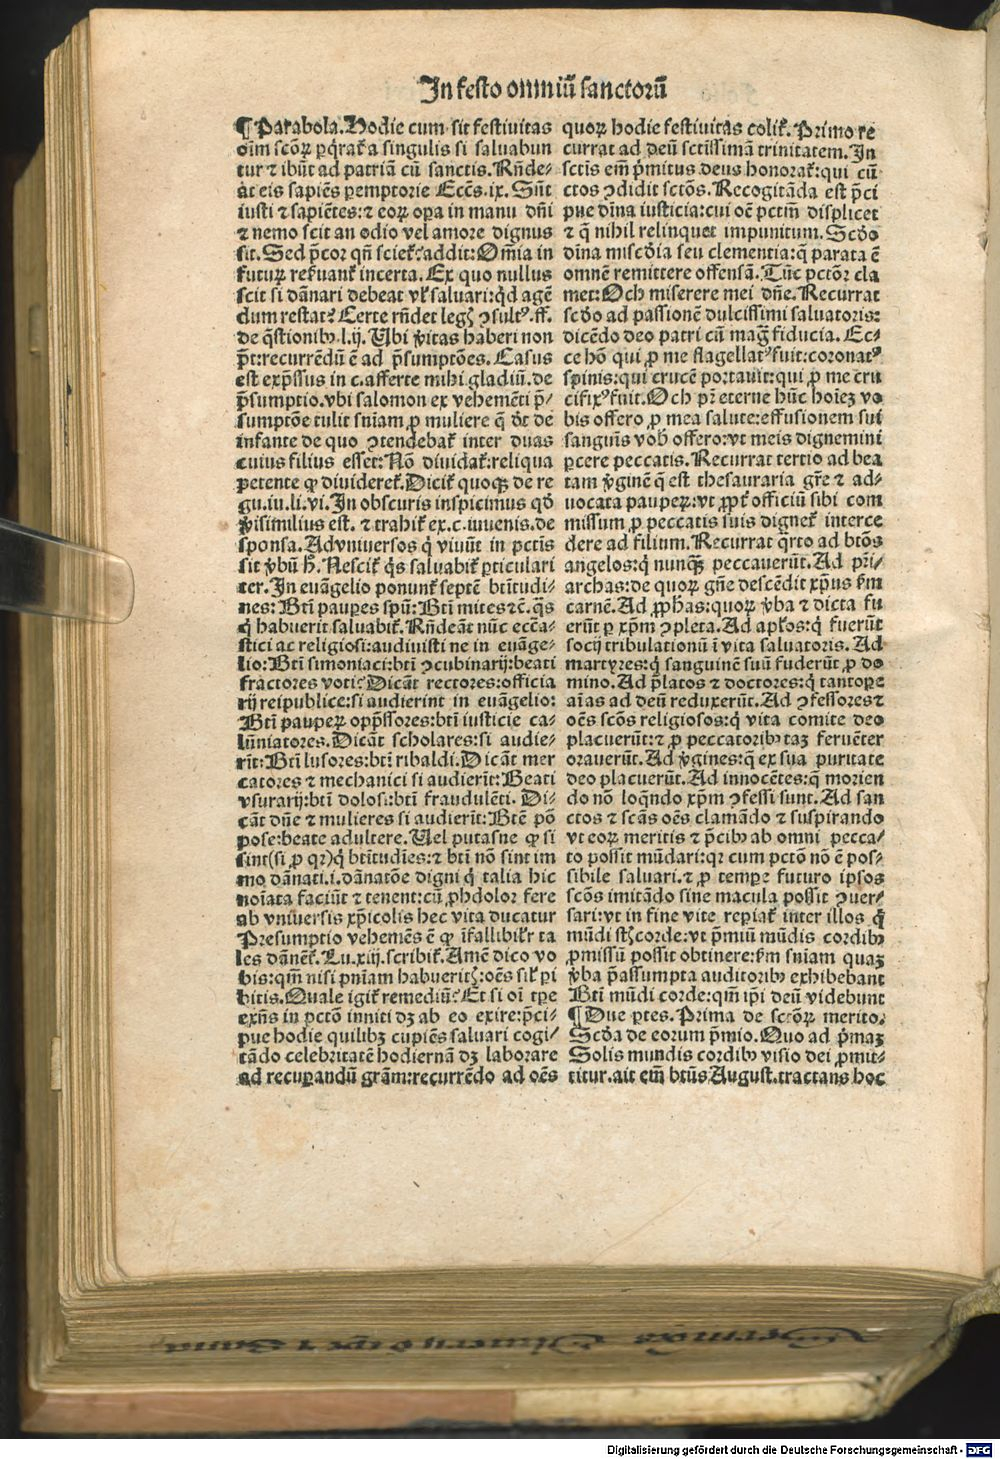 In festo omniū sanctorū
¶ Parabola. Hodie cum sit festiuitas
oīm scōꝝ ꝑq̄rat᷑ a singulis si saluabun
tur ⁊ ibūt ad patriā cū sanctis. Rn̄de⸗
at eis sapiēs ꝑemptorie Eccēs. ix. Sūt
iusti ⁊ sapiētes: ⁊ eoꝝ oꝑa in manu dn̄i
⁊ nemo scit an odio vel amore dignus
sit. Sed p̄cor qn̄ sciet᷑? addit: Om̄ia in
futuꝝ reẜuant᷑ incerta. Ex quo nullus
scit si dānari debeat vl᷑ saluari: qd̓ agē
dum restat? Certe rn̄det legꝭ ꝯsult᷒. ff.
de q̄stionibꝰ. l. ij. Ubi v̓itas haberi non
pt̄: recurrēdū ē ad p̄sumptōes. Casus
est exp̄ssus in c. afferte mihi gladiū. de
p̄sumptio. vbi salomon ex vehemēti p̄⸗
sumptōe tulit sn̄iam ꝓ muliere q̄ dt̓ de
infante de quo ꝯtendebat᷑ inter duas
cuius filius esset: Nō diuidat᷑: reliqua
petente ꝙ diuideret᷑. Dicit᷑ quoqꝫ de re
gu. iu. li. vi. In obscuris inspicimus qd̓
v̓isimilius est. ⁊ trahit᷑ ex. c. iuuenis. de
sponsa. Ad vniuersos q̇ viuūt in pctīs
sit v̓bū h̓. Nescit᷑ q̇s saluabit᷑ ꝑticulari
ter. In euāgelio ponunt᷑ septē btītudi⸗
nes: Btī pauꝑes spū: Btī mites ⁊c̄. q̇s
q̇ habuerit saluabit᷑. Rn̄deāt nūc eccīa⸗
stici ac religiosi: audiuisti ne in euāge⸗
lio: Btī simoniaci: btī ꝯcubinarij: beati
fractores voti? Dicāt rectores: officia
rij reipublice: si audierint in euāgelio:
Btī pauꝑeꝝ opp̄ssores: btī iusticie ca⸗
lūniatores. Dicāt scholares: si audie⸗
rīt: Btī lusores: btī ribaldi. Dicāt mer
catores ⁊ mechanici si audierīt: Beati
vsurarij: btī dolosi: btī fraudulēti. Di⸗
cāt dn̄e ⁊ mulieres si audierīt: Btē pō
pose: beate adultere. Uel putasne ꝙ si
sint (si ꝓ qꝛ) q̇ btītudīes: ⁊ btī nō sint im
mo dānati. i. dānatōe digni q̇ talia hic
noīata faciūt ⁊ tenent: cū ꝓhdolor fere
ab vniuersis xp̄icolis hec vita ducatur
Presumptio vehemēs ē ꝙ īfallibilit᷑ ta
les dānēt᷑. Lu. xiij. scribit᷑. Amē dico vo
bis: qm̄ nisi pn̄iam habueritꝭ: oēs sil᷑ ꝑi
bitis. Quale igit᷑ remediū? Et si oī tꝑe
exn̄s in pctō inniti dꝫ ab eo exire: p̄ci⸗
pue hodie quilibꝫ cupiēs saluari cogi⸗
tādo celebritatē hodiernā dꝫ laborare
ad recuꝑandū gr̄am: recurrēdo ad oēs
quoꝝ hodie festiuitas colit᷑. Primo re
currat ad deū sctīssimā trinitatem. In
sctīs em̄ p̓mitus deus honorat᷑: qui cū
ctos ꝯdidit sctōs. Recogitāda est p̄ci
pue dīna iusticia: cui oē pctm̄ displicet
⁊ q̄ nihil relinquet impunitum. Scd̓o
dīna mīscd̓ia seu clementia: q̄ parata ē
omnē remittere offensā. Tūc pctōr cla
met: Och miserere mei dn̄e. Recurrat
scd̓o ad passionē dulcissimi saluatoris:
dicēdo deo patri cū mag̅ fiducia. Ec⸗
ce hō qui ꝓ me flagellat᷒ fuit: coronat᷒
spinis: qui crucē portauit: qui ꝓ me cru
cifix᷒ fuit. Och pr̄ eterne hūc hoīeꝫ vo
bis offero ꝓ mea salute: effusionem sui
sanguīs vob̓ offero: vt meis dignemini
ꝑcere peccatis. Recurrat tertio ad bea
tam v̓ginē q̄ est thesauraria gr̄e ⁊ ad⸗
uocata pauꝑeꝝ: vt ꝓpt᷑ officiū sibi com
missum ꝓ peccatis suis dignet᷑ interce
dere ad filium. Recurrat q̄rto ad btōs
angelos: q̇ nunqꝫ peccauerūt. Ad pr̄i⸗
archas: de quoꝝ gn̄e descēdit xp̄us ẜm
carnē. Ad ꝓphas: quoꝝ v̓ba ⁊ dicta fu
erūt ꝑ xp̄m ꝯpleta. Ad apl̓os: q̇ fuerūt
socij tribulationū ī vita saluatoris. Ad
martyres: q̇ sanguinē suū fuderūt ꝓ do
mino. Ad p̄latos ⁊ doctores: q̇ tantoꝑe
aīas ad deū reduxerūt. Ad ꝯfessores ⁊
oēs scōs religiosos: q̇ vita comite deo
placuerūt: ⁊ ꝓ peccatoribꝰ taꝫ feruēter
orauerūt. Ad v̓gines: q̄ ex sua puritate
deo placuerūt. Ad innocētes: q̇ morien
do nō loq̄ndo xp̄m ꝯfessi sunt. Ad san
ctos ⁊ scās oēs clamādo ⁊ suspirando
vt eoꝝ meritis ⁊ p̄cibꝰ ab omni pecca⸗
to possit mūdari: qꝛ cum pctō nō ē pos⸗
sibile saluari. ⁊ ꝓ tempꝛe futuro ipsos
scōs imitādo sine macula possit ꝯuer⸗
sari: vt in fine vite reꝑiat᷑ inter illos q̇
mūdi st̄ꝭ corde: vt p̄miū mūdis cordibꝰ
ꝓmissū possit obtinere: ẜm sn̄iam quaꝫ
v̓ba p̄assumpta auditoribꝰ exhibebant
Btī mūdi corde: qm̄ ip̄i deū videbunt
¶ Due ꝑtes. Prima de sctōꝝ merito.
Scd̓a de eorum p̄mio. Quo ad p̓maꝫ
Solis mundis cordibꝰ visio dei ꝓmit⸗
titur. ait em̄ btūs August. tractans hoc
Digitalisierung gefördert durch die Deutsche Forschungsgemeinschaft - DFG